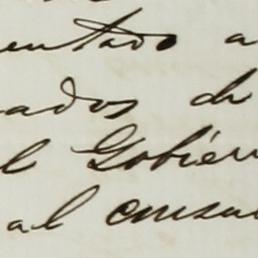 entado a
ados de
l Gobier
al consu